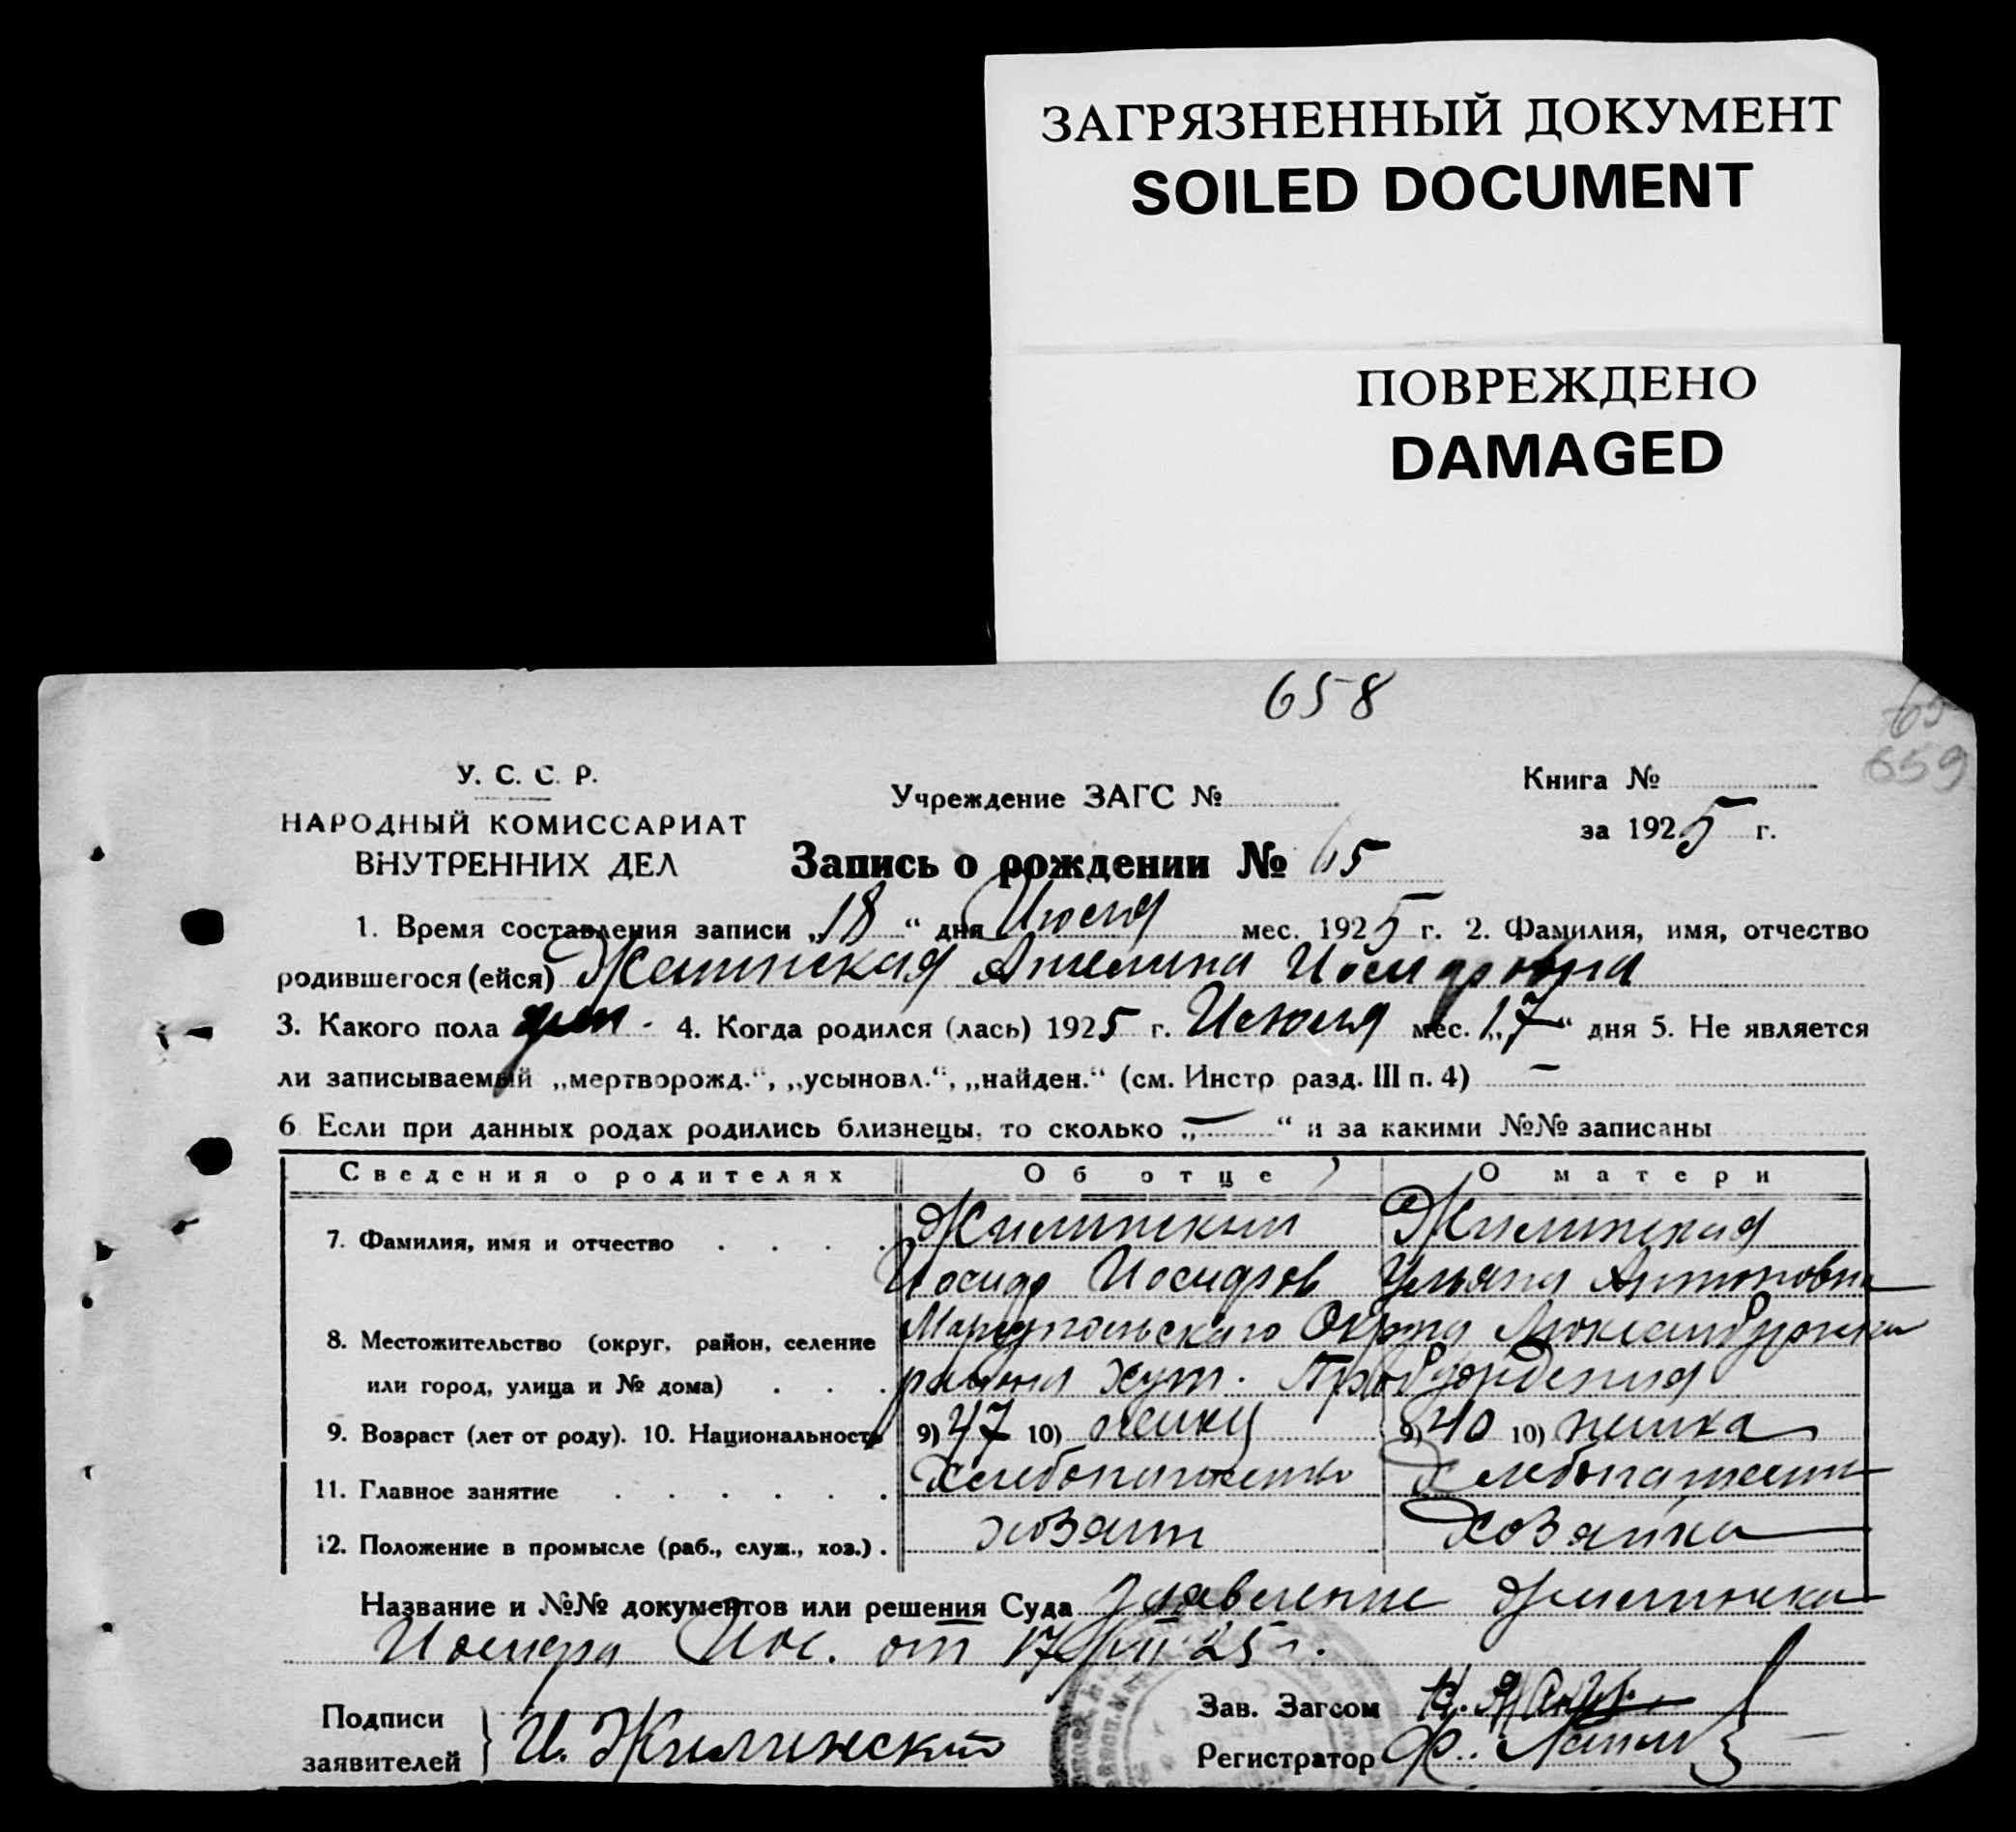 ЗАГРЯЗНЕННЫЙ ДОКУМЕНТ
SOILED DOCUMENT
ПОВРЕЖДЕНО
DAMAGED
658
659
У. С. С. Р.
НАРОДНЫЙ КОМИССАРИАТ
ВНУТРЕННИХ ДЕЛ
Учреждение ЗАГС №
Книга №
за 1925 г.
Запись о рождении № 65
1. Время составления записи „18“ дня Июля мес. 1925 г. 2. Фамилия, имя, отчество
родившегося (ейся) Жилинская Ангелина Иосифовна
3. Какого пола жен. 4. Когда родился (лась) 1925 г. Июля мес. „17“ дня 5. Не является
ли записываемый „мертворожд.“, „усыновл.“, „найден.“ (см. Инстр. разд. III п. 4) —
6 Если при данных родах родились близнецы, то сколько „—“ и за какими №№ записаны
Сведения о родителях Об отце О матери
7. Фамилия, имя и отчество Жилинский Жилинская
Иосиф Иосифов Ульяна Антоновна
8. Местожительство (округ, район, селение Мариупольского Округа Люксембургским
или город, улица и № дома) района хут. Пробуждения
9. Возраст (лет от роду). 10. Национальность 9) 47 10) 9) 40 10)
11. Главное занятие Хлебопашество Хлебопашест
12. Положение в промысле (раб., служ., хоз.) хозяин Хозяйка
Название и №№ документов или решения Суда Заявление Жилинска
Иосифа Иос. от 17/VII 25 г.
Подписи
заявителей } И. Жилинский
Зав. Загсом
Регистратор